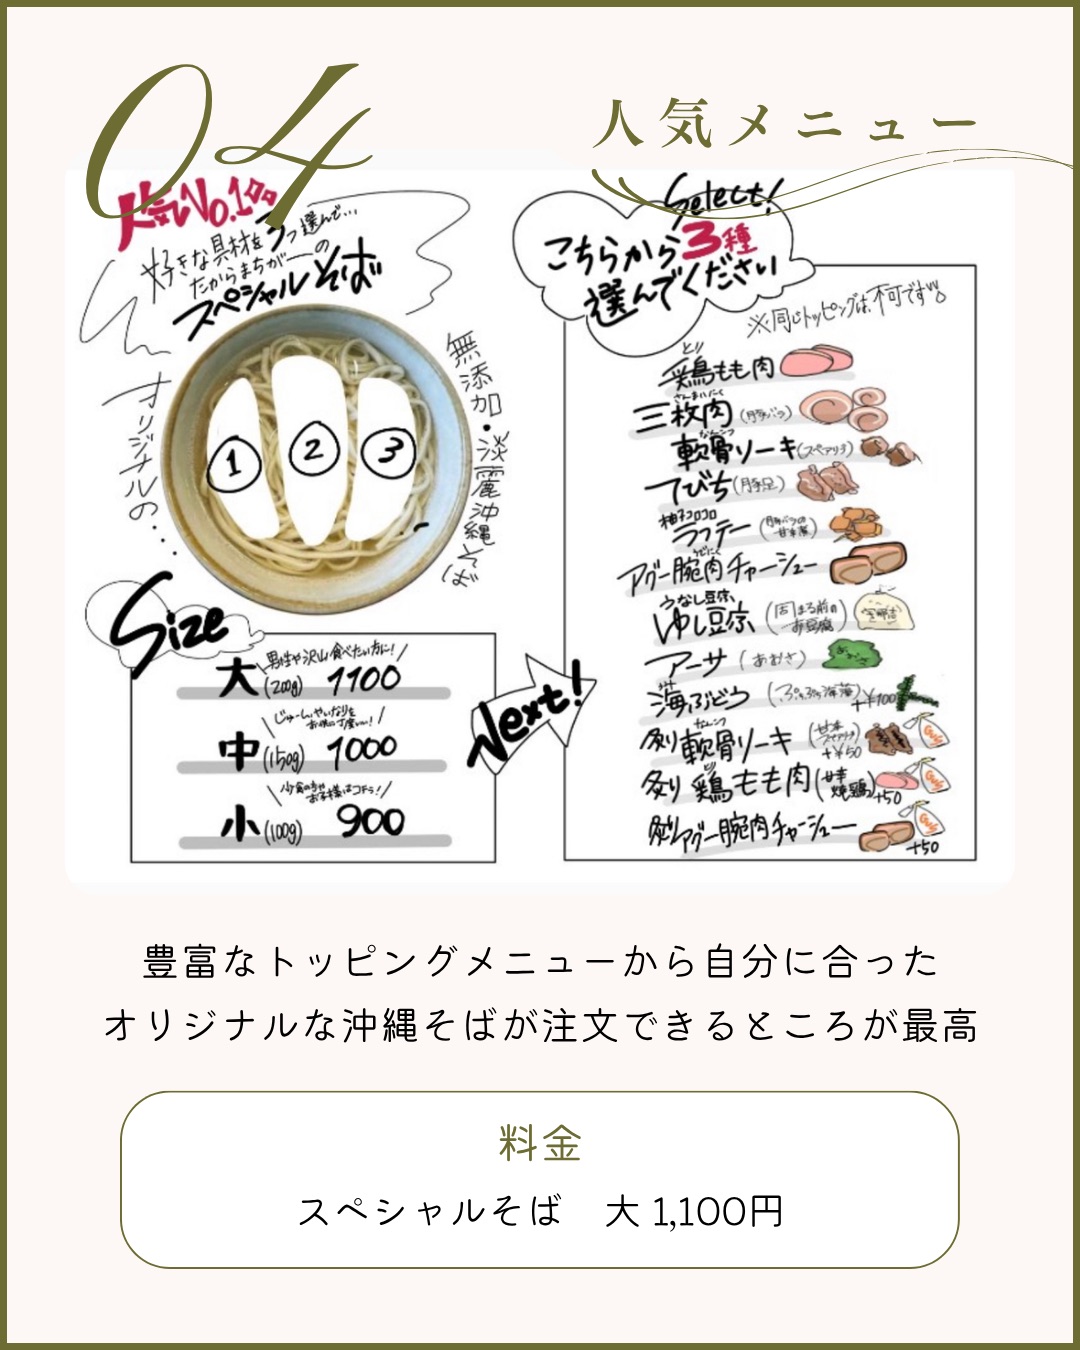 04
人気メニュー
人気No.1
好きな具材を3つ選んで…
だからまちがー－の
スペシャルそば
オリジナルの・・・
無添加・淡麗沖縄そば
1
2
3
Size
男性や沢山食べたい方に!
大(200g) 1100
中(150g) 1000
小(100g) 900
Next!
Select!
こちらから3種
選んでください
※同じトッピングは不可です
とり
鶏もも肉
さんまいにく
三枚肉(豚バラ)
なんこつ
軟骨ソーキ(スペアリブ)
てびち(豚足)
ラフテー
うでにく
アグー腕肉チャーシュー
ゆし豆腐(固まる前のお豆腐)
アーサ(あおさ)
海ぶどう(ぷちぷち海藻)+¥100
なんこつ
炙り軟骨ソーキ
+¥50
とり
炙り鶏もも肉
+50
炙りアグー腕肉チャーシュー
+50
豊富なトッピングメニューから自分に合った
オリジナルな沖縄そばが注文できるところが最高
料金
スペシャルそば 大 1,100円